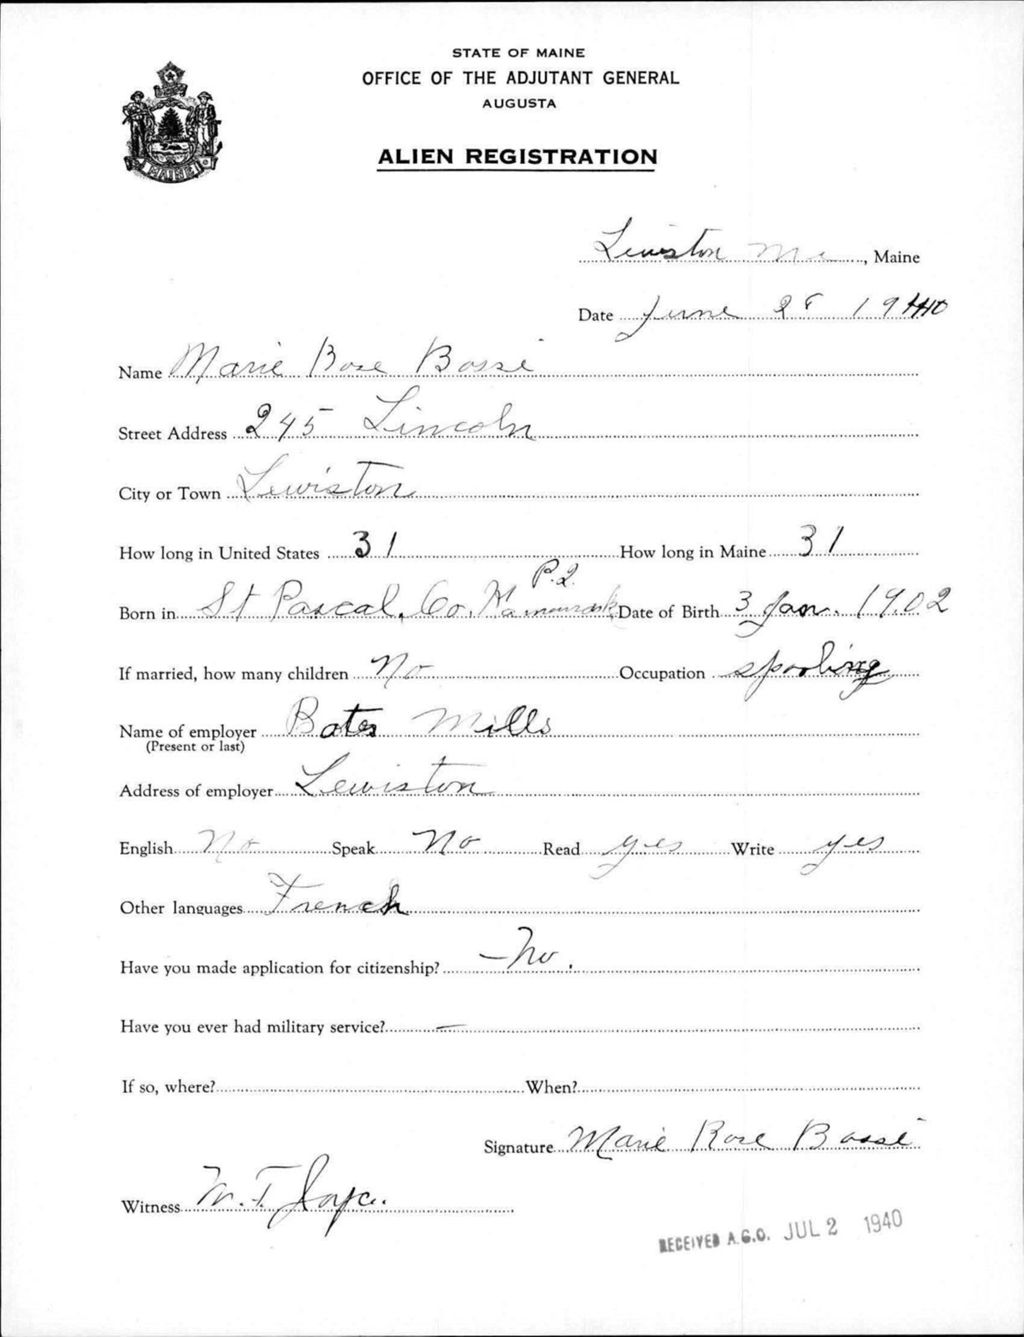 STATE OF MAINE
OFFICE OF THE ADJUTANT GENERAL
AUGUSTA
ALIEN REGISTRATION
MAINE
Lewiston Me, Maine
Date June 28 1940
Name Marie Rose Bossé
Street Address 245 Lincoln
City or Town Lewiston
How long in United States 31 How long in Maine 31
P.Q.
Born in St Pascal, Co. Kamouraska Date of Birth 3 Jan. 1902
If married, how many children No Occupation spooling
Name of employer Bates Mills
(Present or last)
Address of employer Lewiston
English No Speak No Read yes Write yes
Other languages French
Have you made application for citizenship? No.
Have you ever had military service? —
If so, where? When?
Signature Marie Rose Bossé
Witness W. T. Joyce.
RECEIVED A.G.O. JUL 2 1940